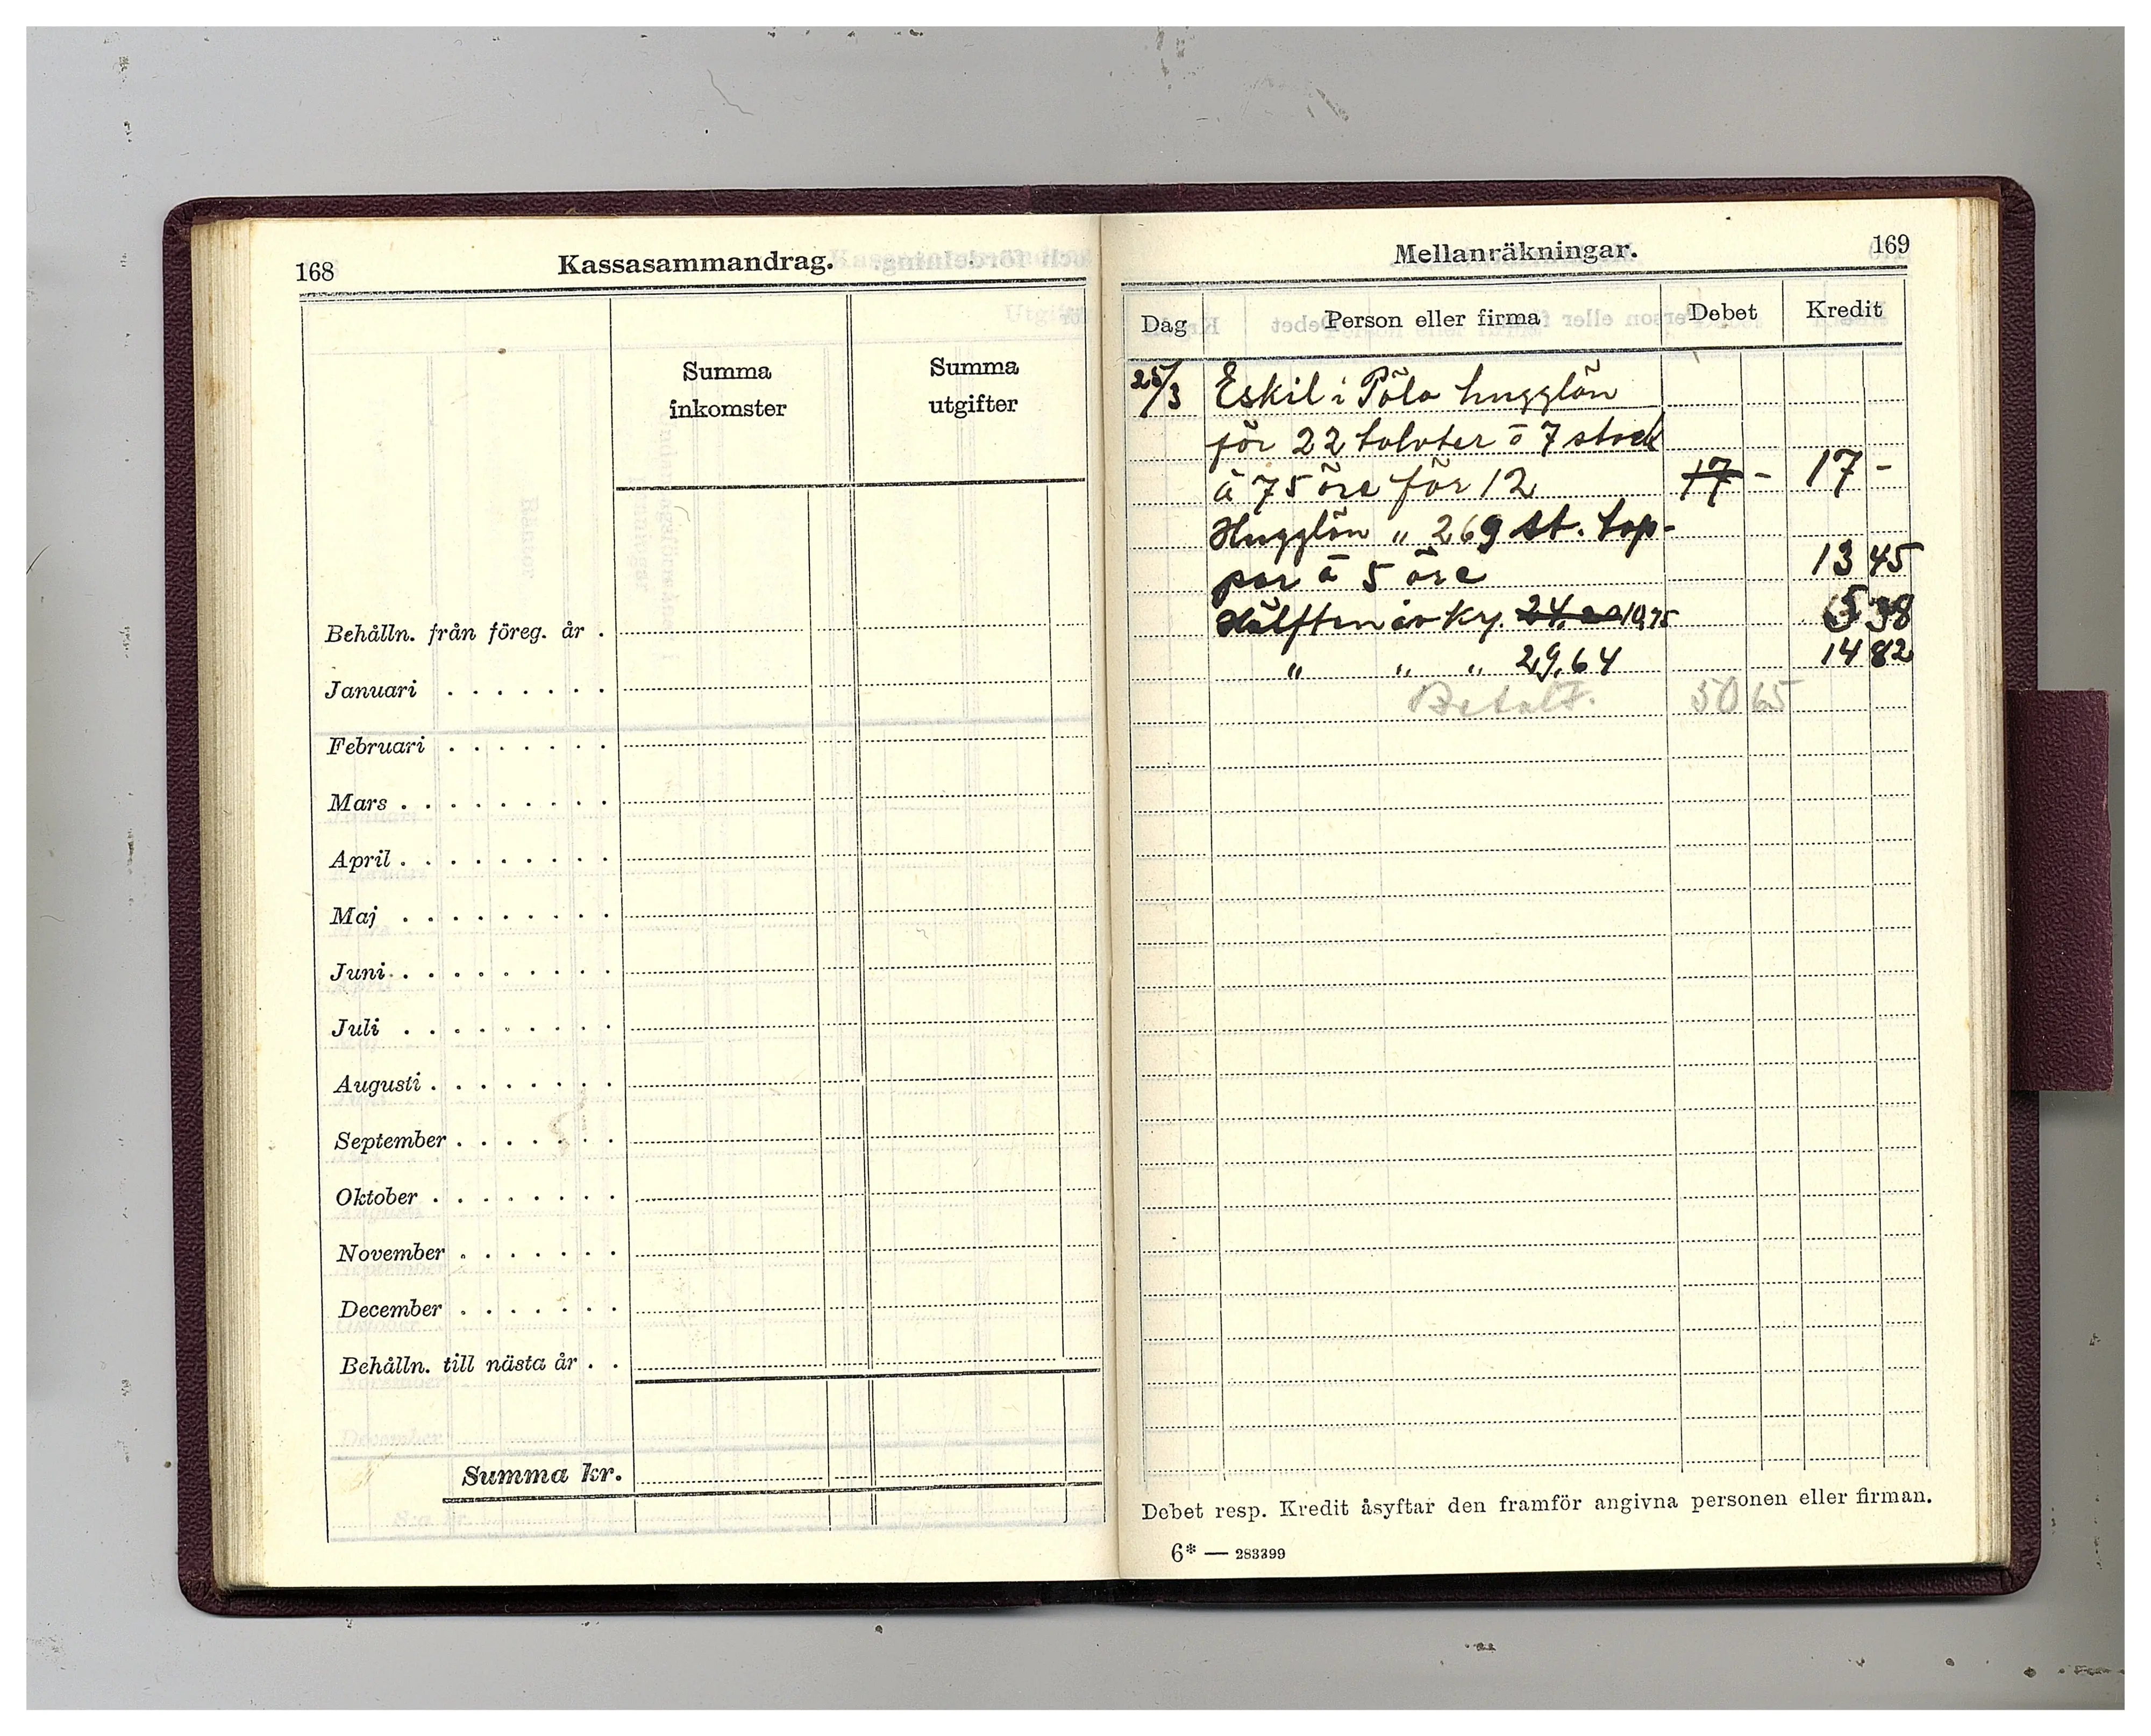 168
Kassasammandrag.
Summa inkomster
Summa utgifter
Behålln. från föreg. år .
Januari . . . . . . .
Februari . . . . . . .
Mars . . . . . . . . .
April . . . . . . . . .
Maj . . . . . . . . .
Juni . . . . . . . . .
Juli . . . . . . . . .
Augusti . . . . . . . .
September . . . . . . .
Oktober . . . . . . . .
November . . . . . . .
December . . . . . . .
Behålln. till nästa år . .
Summa kr.
Mellanräkningar.
169
Dag Person eller firma Debet Kredit
25/3 Eskil i Påla hugglön
för 22 tolvter ō 7 stock
à 75 öre för 12 17 - 17 -
Hugglön „ 269 st. top-
par à 5 öre 13 45
Hälften av Kr. 24. 10,75 5 38
„ „ „ 29,64 14 82
Betalt. 50 65
Debet resp. Kredit åsyftar den framför angivna personen eller firman.
6* — 283399